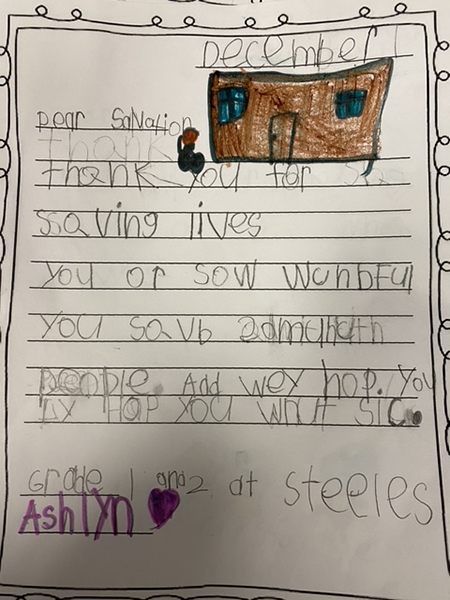 December 1
Dear SaNation
Thank
thank you for
ssaving lives
You or sow wunbful
You savb
people. Add wey hop. You
hop you wnut sic.
Grade 1 and 2 at steeles
Ashlyn